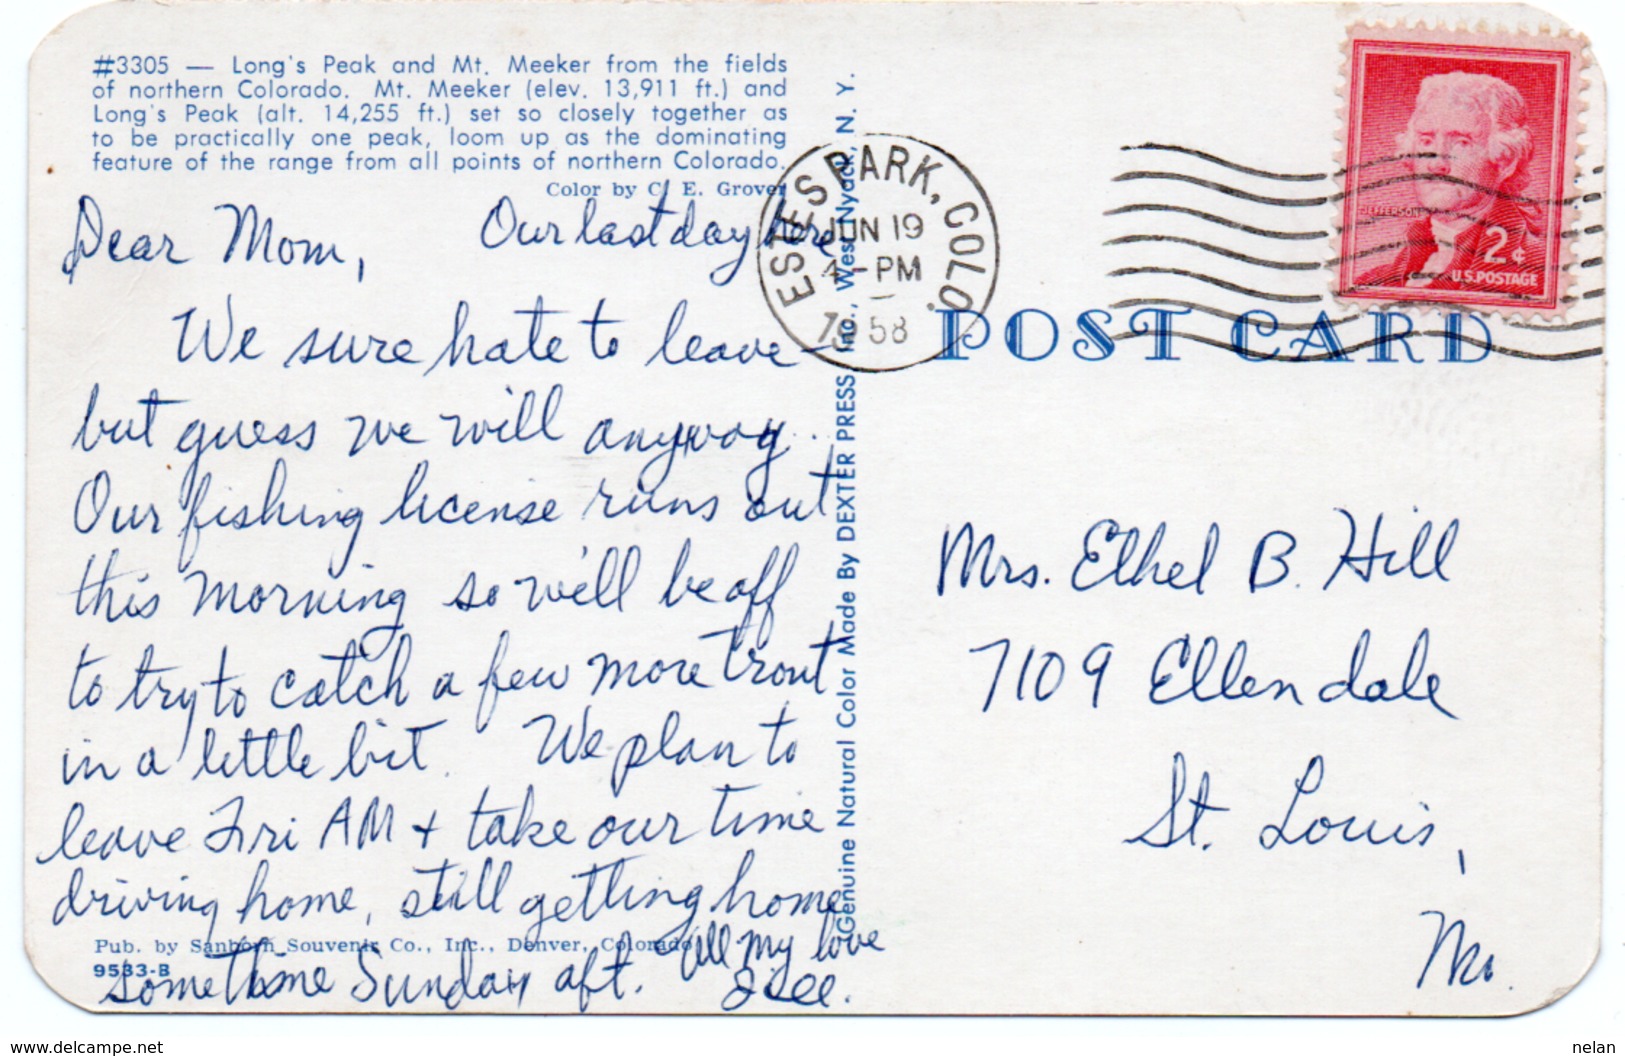 #3305 — Long's Peak and Mt. Meeker from the fields
of northern Colorado. Mt. Meeker (elev. 13,911 ft.) and
Long's Peak (alt. 14,255 ft.) set so closely together as
to be practically one peak, loom up as the dominating
feature of the range from all points of northern Colorado.
Color by C. E. Grover
Dear Mom, Our last day here
We sure hate to leave —
but guess we will anyway.
Our fishing license runs out
this morning so we'll be off
to try to catch a few more trout
in a little bit. We plan to
leave Fri AM + take our time
driving home, still getting home
sometime Sunday aft. All my love
Pub. by Sanborn Souvenir Co., Inc., Denver, Colorado
9583-B
Genuine Natural Color Made By DEXTER PRESS Inc., West Nyack, N. Y.
ESTES PARK, COLO.
JUN 19
4 - PM
1958
JEFFERSON
2¢
U.S. POSTAGE
POST CARD
Mrs. Ethel B. Hill
7109 Ellendale
St. Louis,
Mo.
www.delcampe.net
nelan